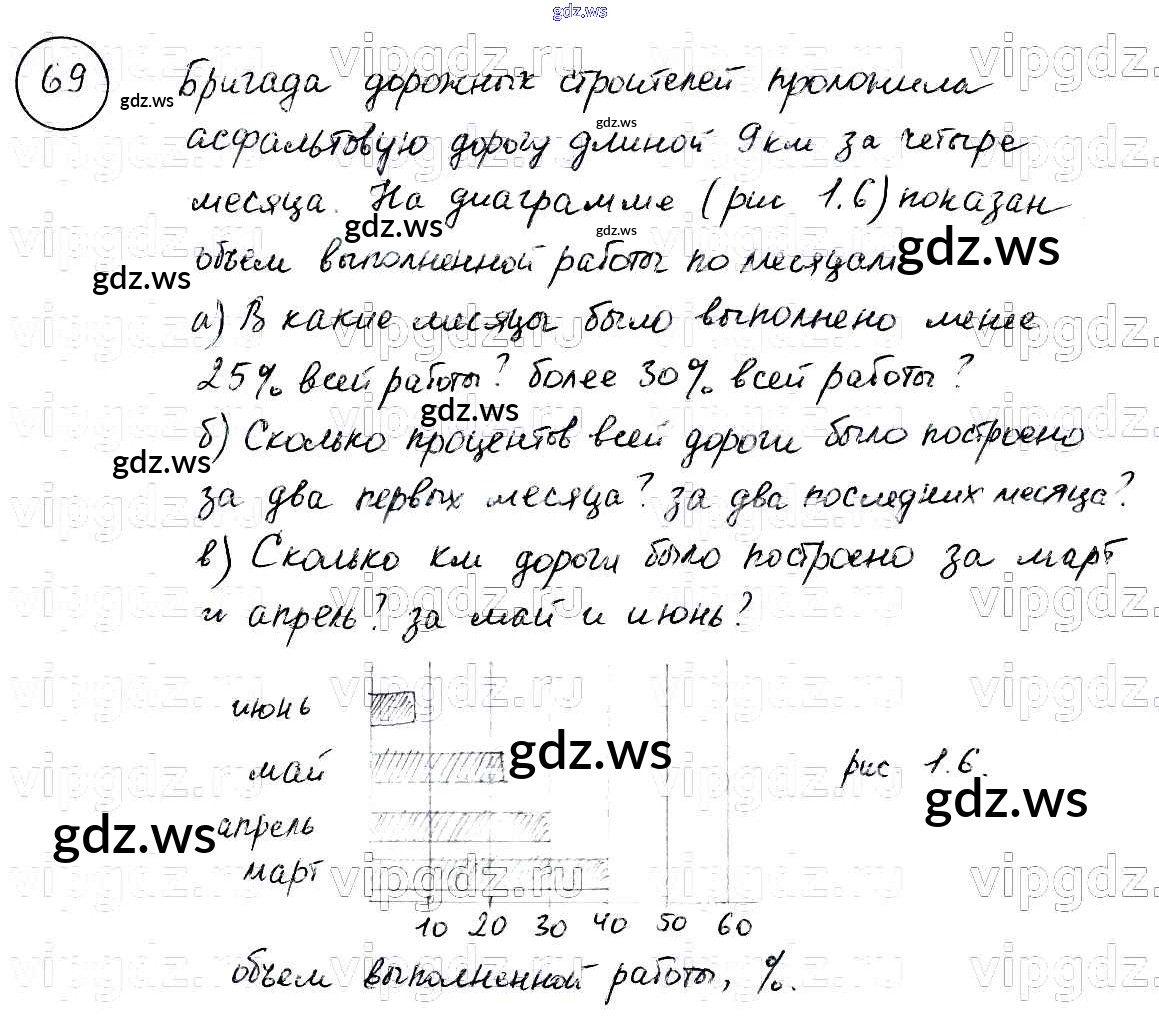 gdz.ws
69 Бригада дорожных строителей проложила
gdz.ws
асфальтовую дорогу длиной 9 км за четыре
gdz.ws
месяца. На диаграмме (рис 1.6) показан
gdz.ws gdz.ws gdz.ws
объем выполненной работы по месяцам
gdz.ws
а) В какие месяцы было выполнено менее
25% всей работы? более 30% всей работы?
gdz.ws
б) Сколько процентов всей дороги было построено
gdz.ws
за два первых месяца? за два последних месяца?
в) Сколько км дороги было построено за март
и апрель? за май и июнь?
июнь
май gdz.ws рис 1.6.
gdz.ws
апрель gdz.ws
март
10 20 30 40 50 60
объем выполненной работы, %.
vipgdz.ru vipgdz.ru vipgdz.ru vipgdz.